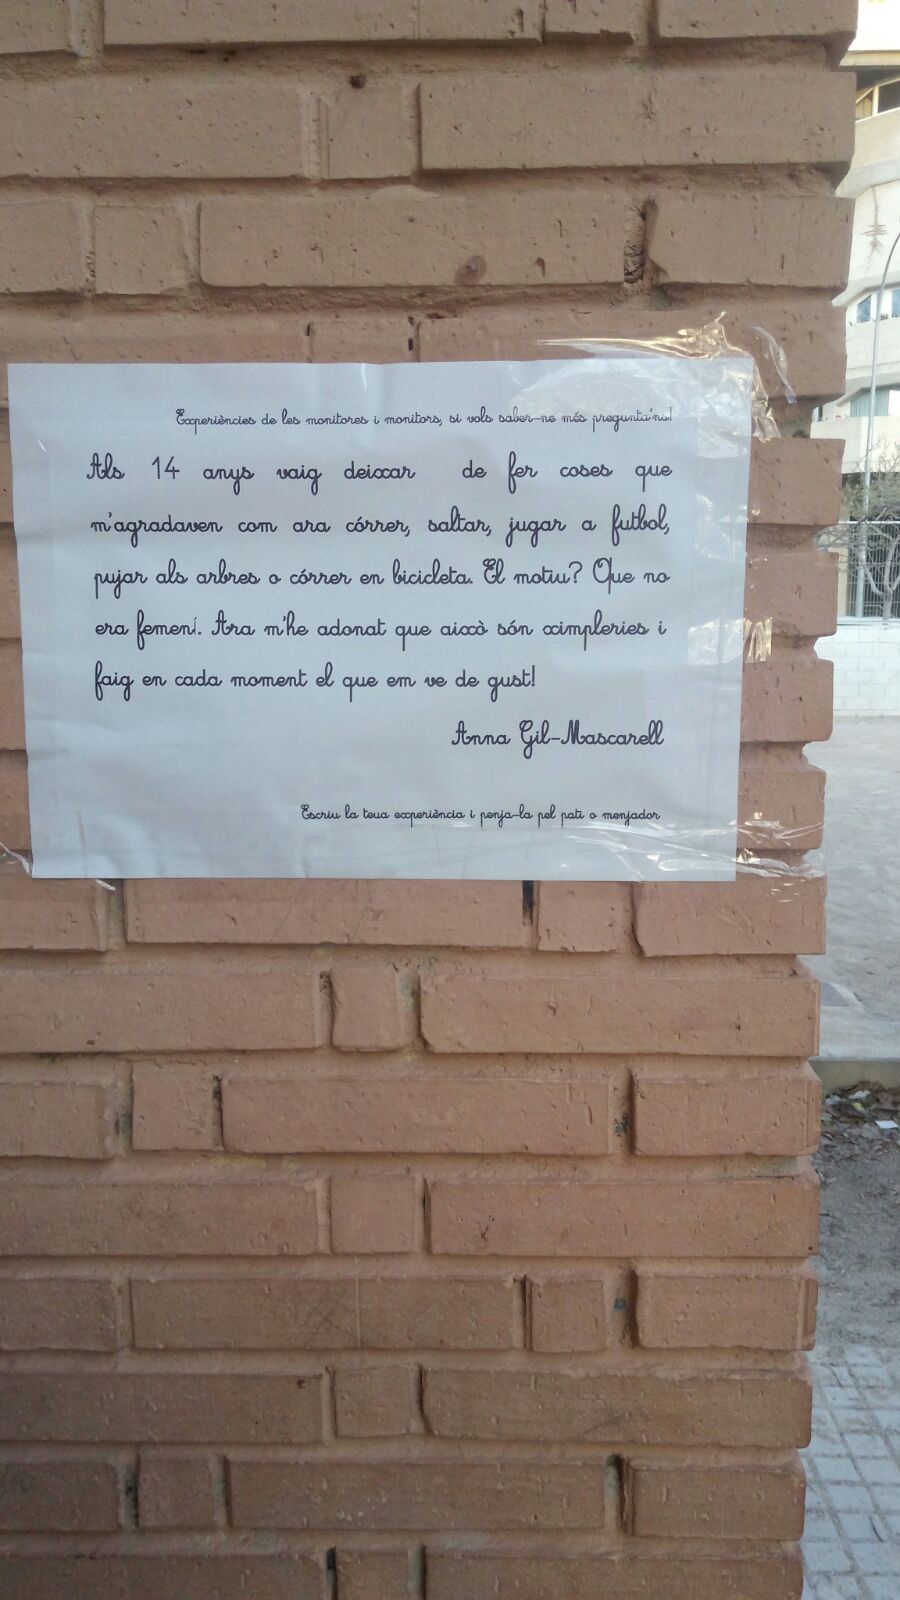 Experiències de les monitores i monitors, si vols saber-ne més pregunta'ns!
Als 14 anys vaig deixar de fer coses que
m'agradaven com ara córrer, saltar, jugar a futbol,
pujar als arbres o córrer en bicicleta. El motiu? Que no
era femení. Ara m'he adonat que això són ximpleries i
faig en cada moment el que em ve de gust!
Anna Gil-Mascarell
Escriu la teua experiència i penja-la pel pati o menjador